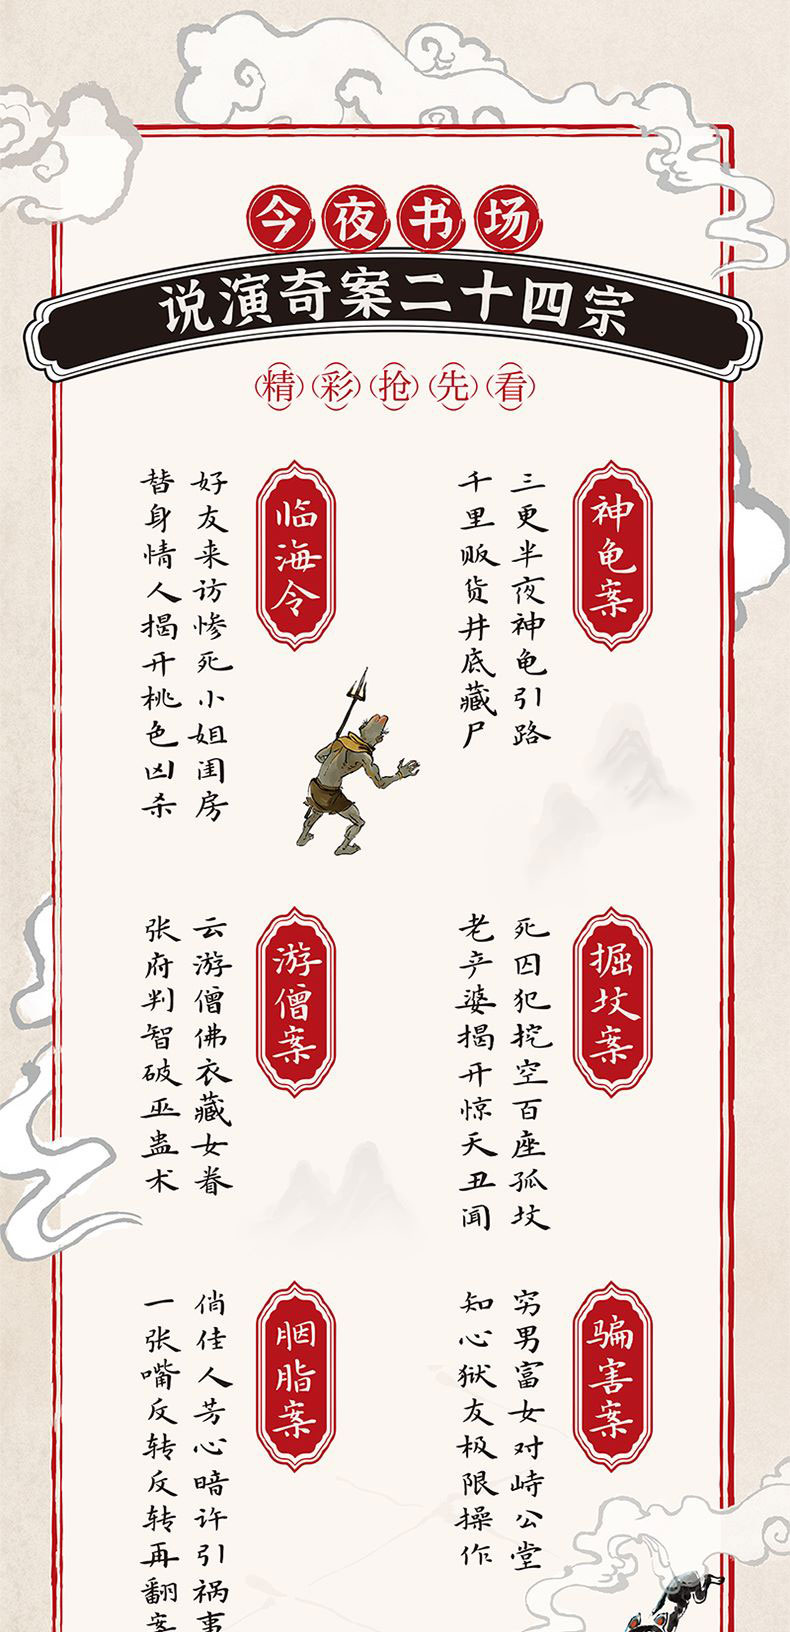 今夜书场
说演奇案二十四宗
精彩抢先看
神龟案
三更半夜神龟引路
千里贩货井底藏尸
临海令
好友来访惨死小姐闺房
替身情人揭开桃色凶杀
掘坟案
死囚犯挖空百座孤坟
老产婆揭开惊天丑闻
游僧案
云游僧佛衣藏女眷
张府判智破巫蛊术
骗害案
穷男富女对峙公堂
知心狱友极限操作
胭脂案
俏佳人芳心暗许引祸事
一张嘴反转反转再翻案